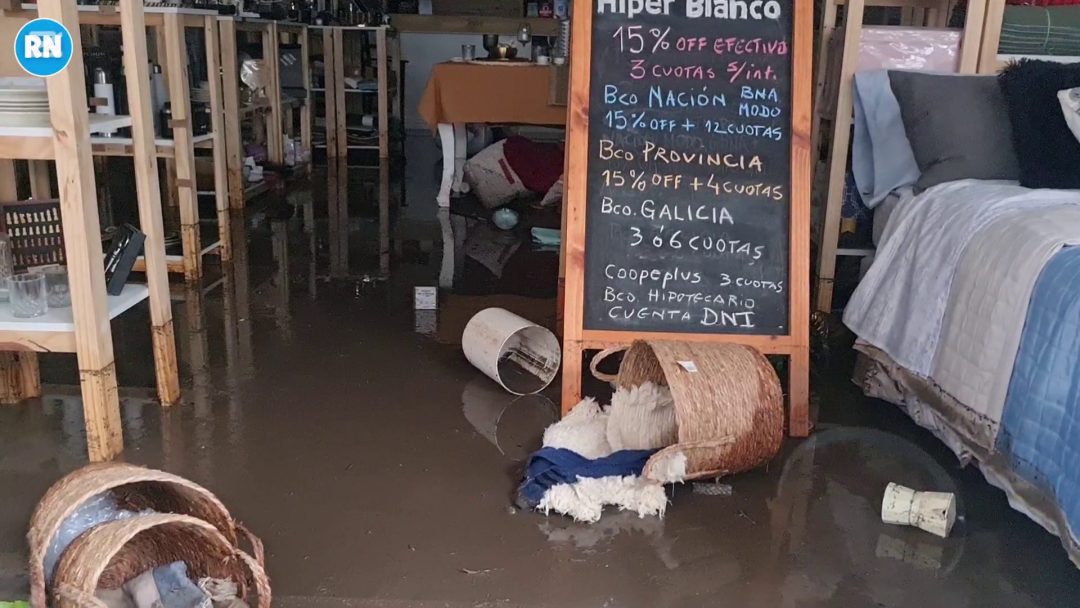 RN
Hiper Blanco
15% OFF EFECTIVO
3 CUOTAS S/int.
Bco NACIÓN BNA MODO
15% OFF + 12 CUOTAS
Bco PROVINCIA
15% OFF + 4 CUOTAS
Bco. GALICIA
3 ó 6 CUOTAS
Coopeplus 3 CUOTAS
Bco. HIPOTECARIO
CUENTA DNI